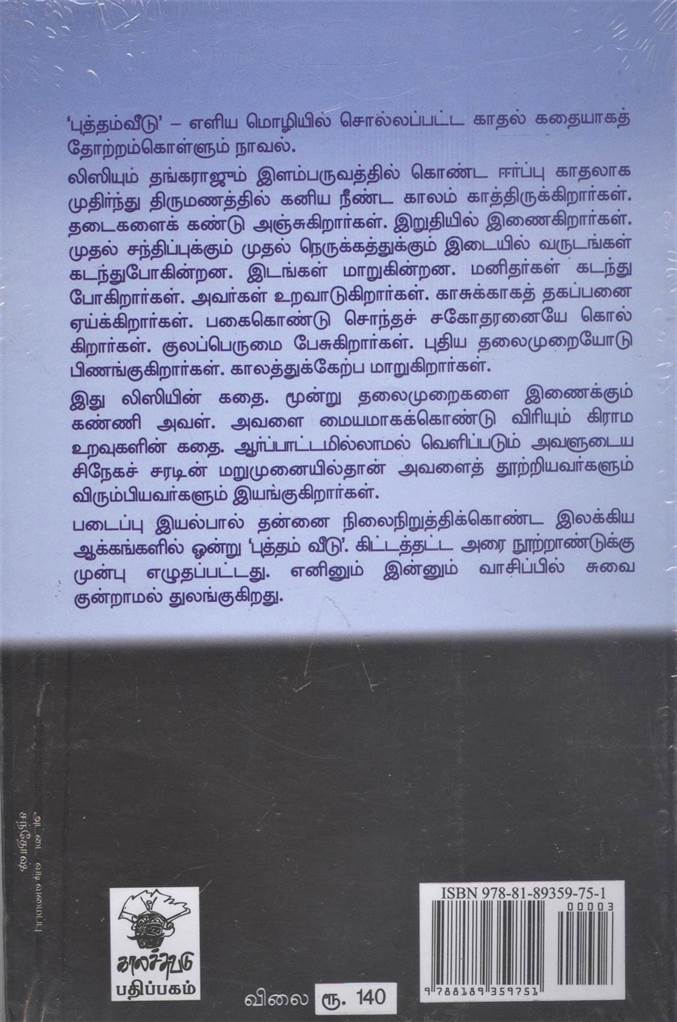 ‘புத்தம்வீடு’ – எளிய மொழியில் சொல்லப்பட்ட காதல் கதையாகத்
தோற்றம்கொள்ளும் நாவல்.
லிஸியும் தங்கராஜும் இளம்பருவத்தில் கொண்ட ஈர்ப்பு காதலாக
முதிர்ந்து திருமணத்தில் கனிய நீண்ட காலம் காத்திருக்கிறார்கள்.
தடைகளைக் கண்டு அஞ்சுகிறார்கள். இறுதியில் இணைகிறார்கள்.
முதல் சந்திப்புக்கும் முதல் நெருக்கத்துக்கும் இடையில் வருடங்கள்
கடந்துபோகின்றன. இடங்கள் மாறுகின்றன. மனிதர்கள் கடந்து
போகிறார்கள். அவர்கள் உறவாடுகிறார்கள். காசுக்காகத் தகப்பனை
ஏய்க்கிறார்கள். பகைகொண்டு சொந்தச் சகோதரனையே கொல்
கிறார்கள். குலப்பெருமை பேசுகிறார்கள். புதிய தலைமுறையோடு
பிணங்குகிறார்கள். காலத்துக்கேற்ப மாறுகிறார்கள்.
இது லிஸியின் கதை. மூன்று தலைமுறைகளை இணைக்கும்
கண்ணி அவள். அவளை மையமாகக்கொண்டு விரியும் கிராம
உறவுகளின் கதை. ஆர்ப்பாட்டமில்லாமல் வெளிப்படும் அவளுடைய
சிநேகச் சரடின் மறுமுனையில்தான் அவளைத் தூற்றியவர்களும்
விரும்பியவர்களும் இயங்குகிறார்கள்.
படைப்பு இயல்பால் தன்னை நிலைநிறுத்திக்கொண்ட இலக்கிய
ஆக்கங்களில் ஒன்று ‘புத்தம் வீடு’. கிட்டத்தட்ட அரை நூற்றாண்டுக்கு
முன்பு எழுதப்பட்டது. எனினும் இன்னும் வாசிப்பில் சுவை
குன்றாமல் துலங்குகிறது.
அட்டை வடிவமைப்பு
சந்தோஷ்
காலச்சுவடு
பதிப்பகம்
விலை ரூ. 140
ISBN 978-81-89359-75-1
00003
9 788189 359751